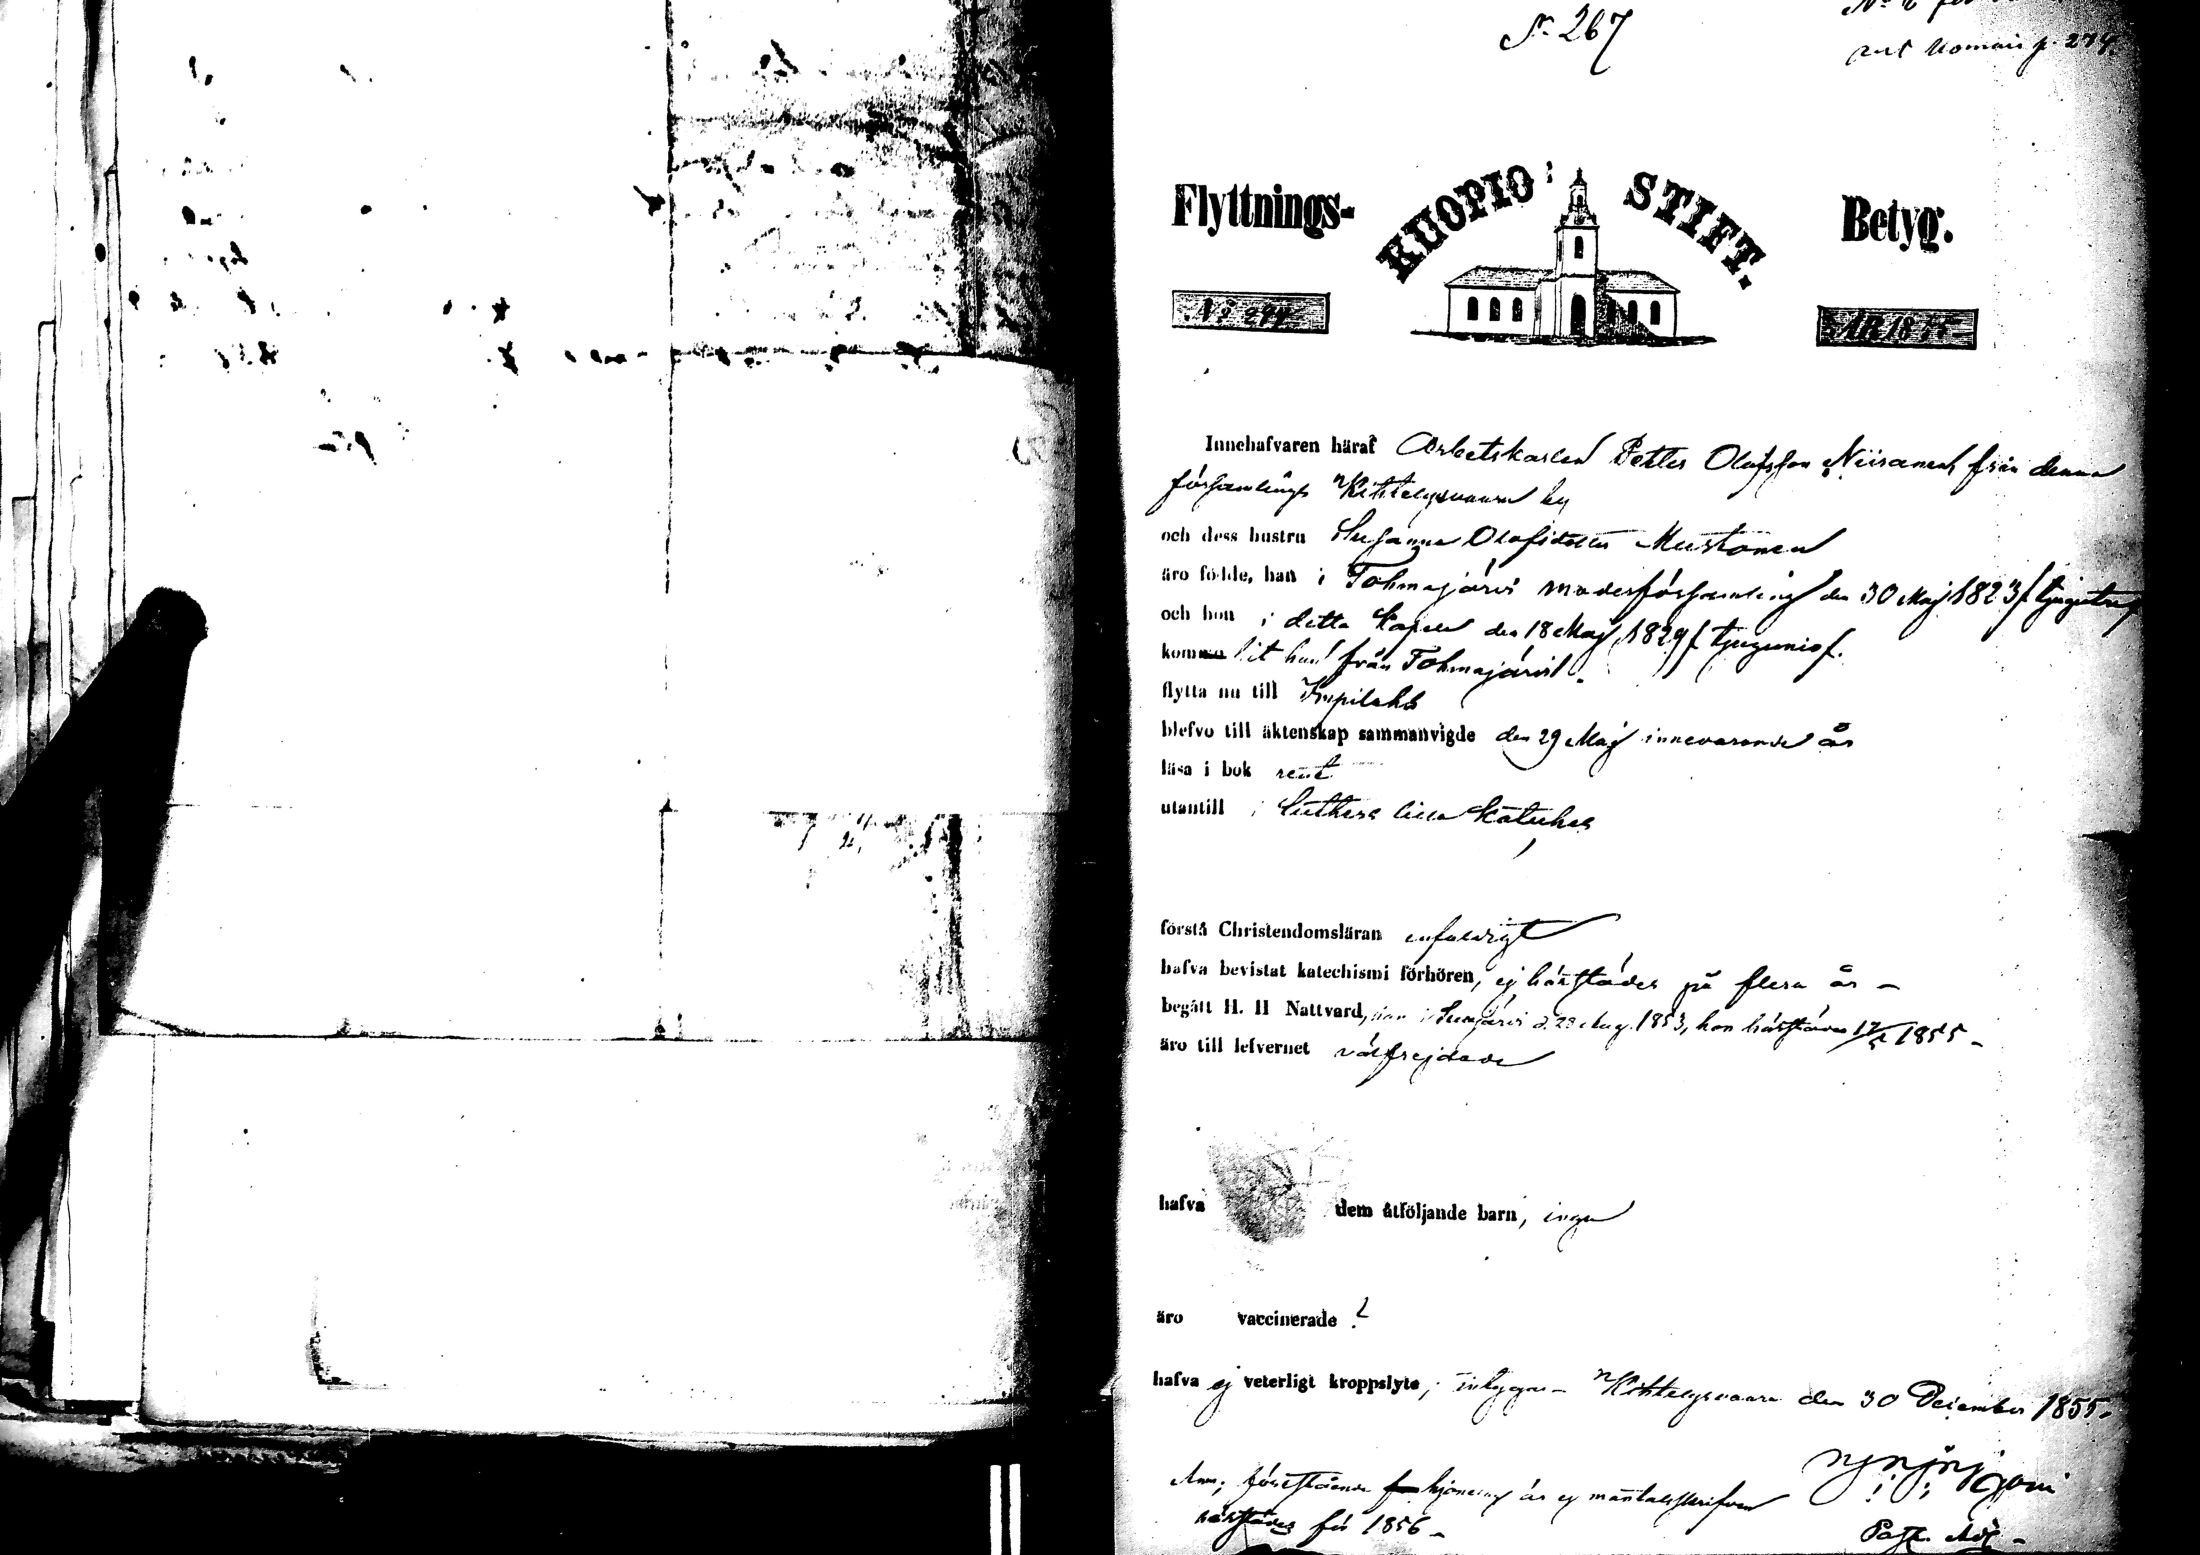 N. 267
ant Komais p. 274.
Flyttnings- KUOPIO STIFT. Betyg.
No 294 ÅR 1855
Innehafvaren häraf Arbetskarlen Petter Olofsson Niiranen från denna
församlings Kihtelysvaara by
och dess hustru Susanna Olofsdotter Mustonen
äro födde, han i Tohmajärvi moderförsamling den 30 Maj 1823 f. tjugutre f
och hon i detta Kapell den 18 Maj 1829 f. tjugunio f.
kommo hit han från Tohmajärvi.
flytta nu till Impilaks
blefvo till äktenskap sammanvigde den 29 Maj innevarande år
läsa i bok rent
utantill i Luthers lilla Kateches
förstå Christendomsläran enfaldigt
hafva bevistat katechismi förhören, ej härstädes på flera år -
begått H. H Nattvard, han i 1853, hon härstädes 1855 -
äro till lefvernet välfrejdade
hafva dem åtföljande barn, inga
äro vaccinerade ?
hafva ej veterligt kroppslyte; intygar - Kihtelysvaara den 30 December 1855 -
Anm; förestående hjonelag är ej mantalsskrifven
härstädes för 1856 -
Past. Adj. -